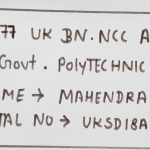 77 UK BN.NCC A
Govt. POLYTECHNIC
ME → MAHENDRA
TAL NO → UKSD18A